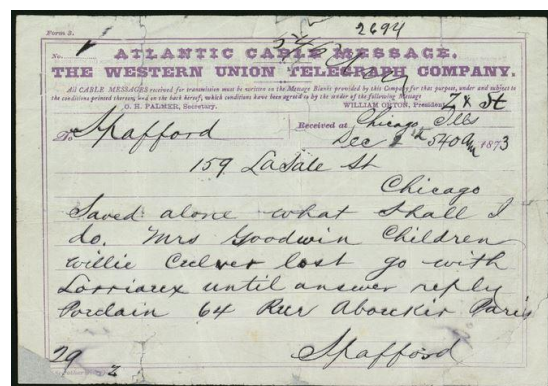 Form 2.
2694
No. 1
ATLANTIC CABLE MESSAGE.
THE WESTERN UNION TELEGRAPH COMPANY.
ALL CABLE MESSAGES received for transmission must be written on the Message Blanks provided by this Company for that purpose, under and subject to
the conditions printed thereon, and on the back hereof, which conditions have been agreed to by the sender of the following message
O. H. PALMER, Secretary. WILLIAM ORTON, President.
Received at Chicago Ills
Dec 540 1873
To Spafford
159 LaSale St
Chicago
Saved alone what shall I
do. Mrs Goodwin Children
Willie Culver lost go with
Lorriaux until answer reply
Porclain 64 Rue Aboukir Paris
Spafford
29 2